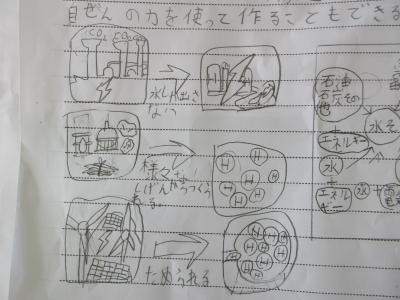 自ぜんの力を使って作ることもできる
CO₂ CO₂
水しか出さ
ない
様々な
しげんからつくら
れる。
ためられる
H H H H H H H
H H H H H H H H
石油
石炭その
他
+
エネルギー
水そ
水
+
エネルギー
水+